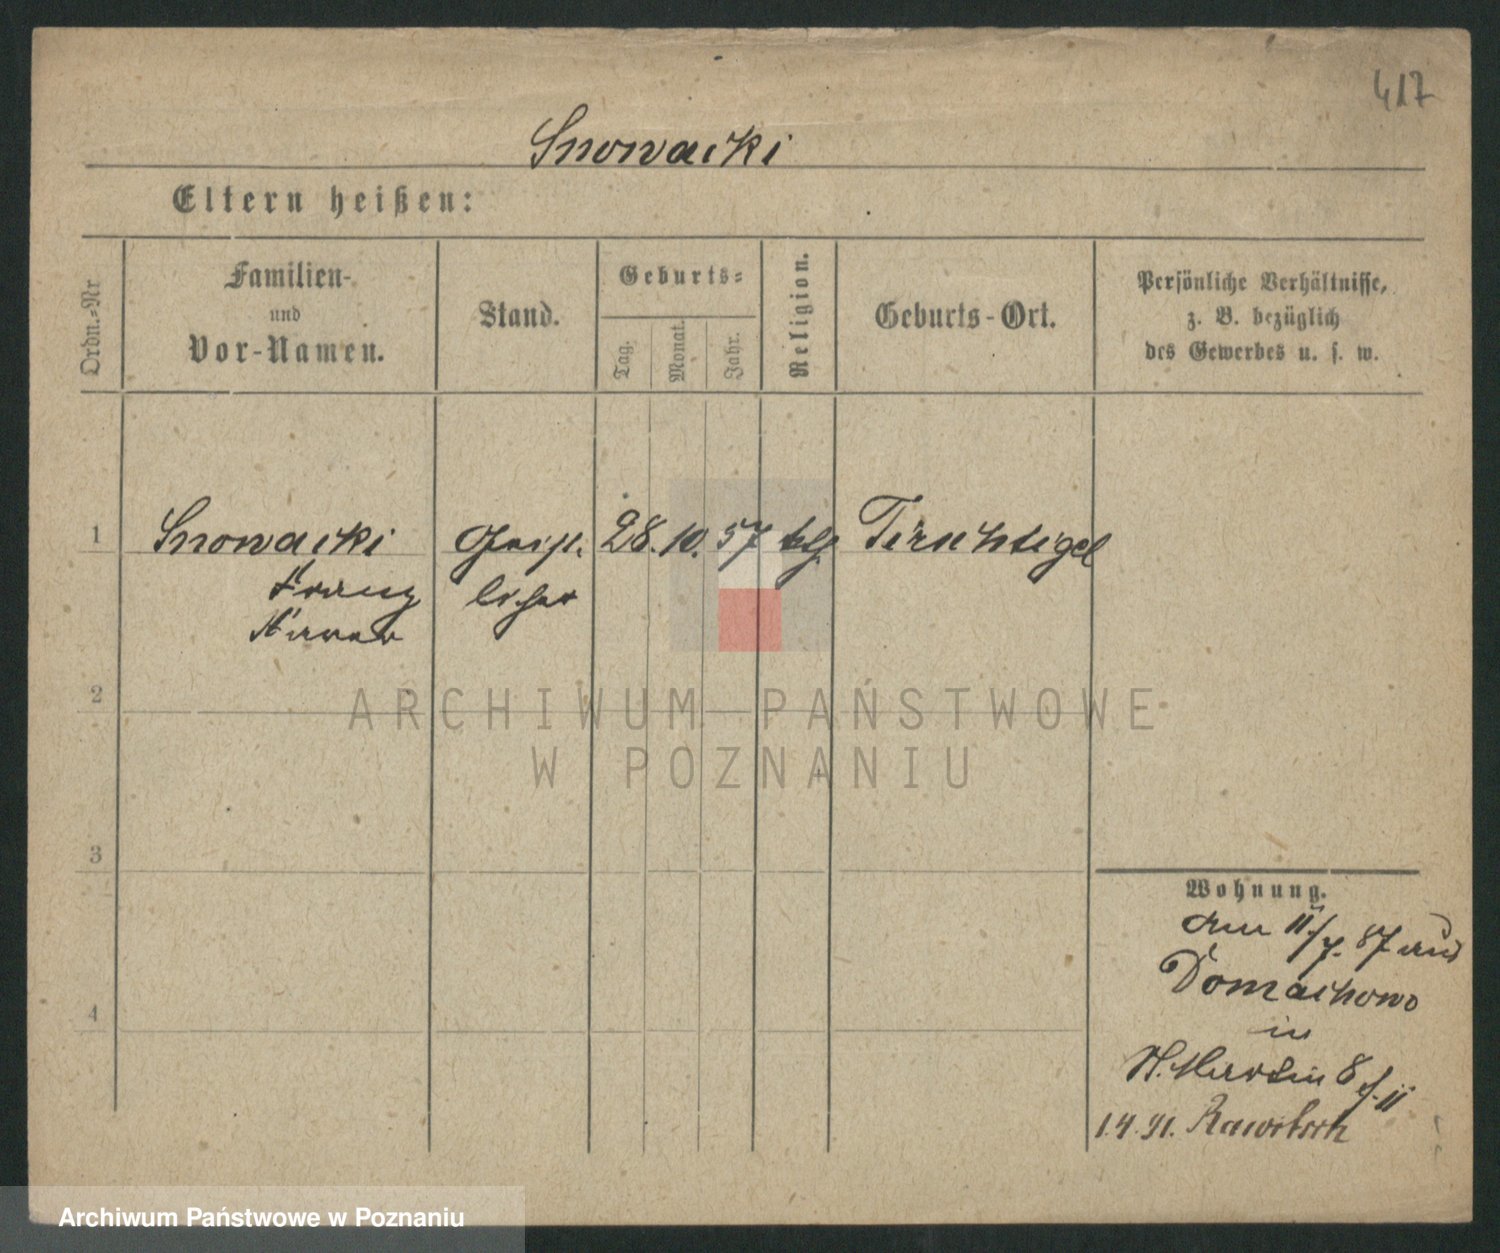 417
Snowacki
Eltern heißen:
Ordn.-Nr
Familien-
und
Vor-Namen.
Stand.
Geburts-
Tag.
Monat.
Jahr.
Religion.
Geburts-Ort.
Persönliche Verhältnisse,
z. B. bezüglich
des Gewerbes u. s. w.
1 Snowacki Geist- 28. 10. 57 kth. Tirschtigel
Franz licher
Xaver
2
ARCHIWUM PAŃSTWOWE
W POZNANIU
3
Wohnung.
am 11/7. 87 aus
Domachowo
4
in
St. Martin 8 
1.4.91. Rawitsch
Archiwum Państwowe w Poznaniu